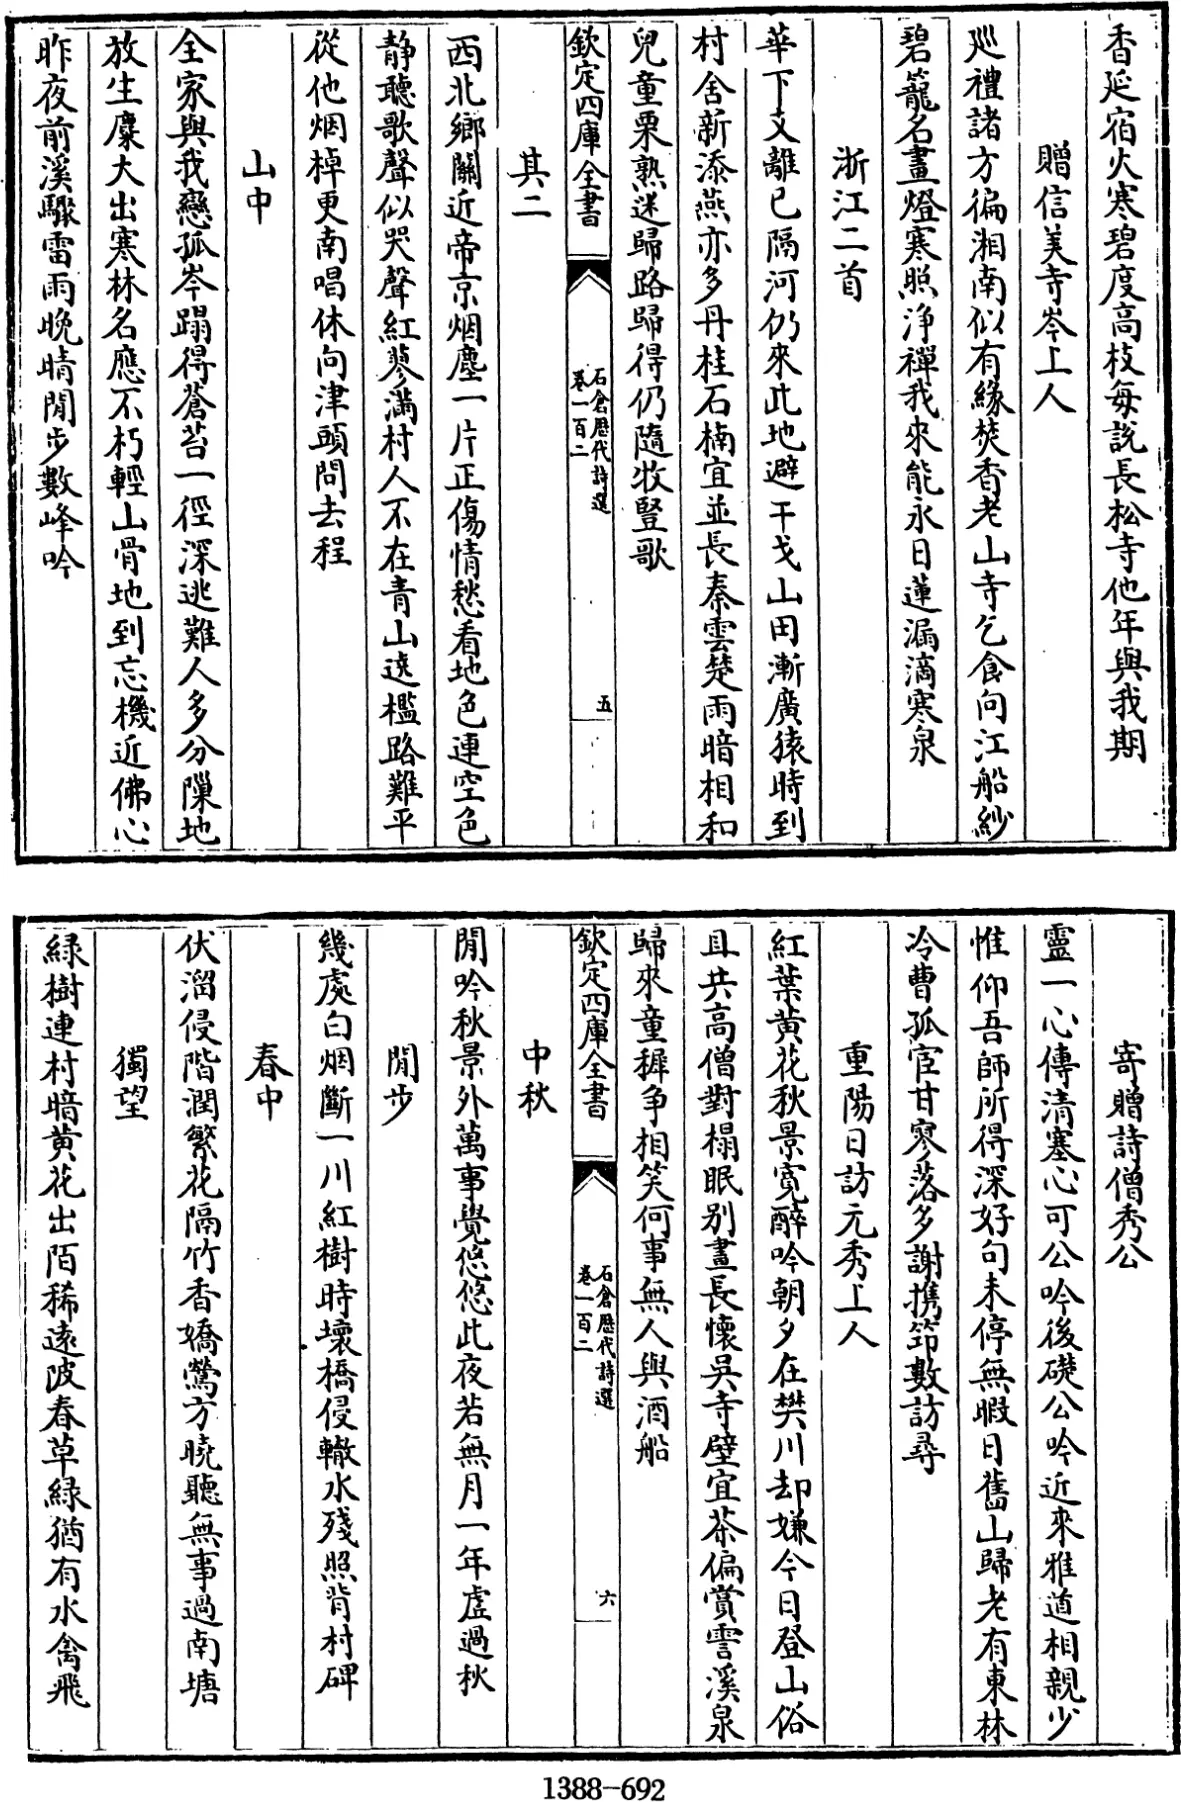 香延宿火寒碧度高枝每説長松寺他年與我期
贈信美寺岑上人
巡禮諸方徧湘南似有緣焚香老山寺乞食向江船紗
碧籠名畫燈寒照浄禪我來能永日蓮漏滴寒泉
浙江二首
華下支離已隔河仍來此地避干戈山田漸廣猿時到
村舍新添燕亦多丹桂石楠宜並長秦雲楚雨暗相和
兒童栗熟迷歸路歸得仍隨牧豎歌
欽定四庫全書
石倉歷代詩選
卷一百二
五
其二
西北鄉關近帝京烟塵一片正傷情愁看地色連空色
静聽歌聲似哭聲紅蓼滿村人不在青山遶檻路難平
從他烟棹更南唱休向津頭問去程
山中
全家與我戀孤岑蹋得蒼苔一徑深逃難人多分隟地
放生麋大出寒林名應不朽輕山骨地到忘機近佛心
昨夜前溪驟雷雨晚晴閒步數峰吟
寄贈詩僧秀公
靈一心傳清塞心可公吟後礎公吟近來雅道相親少
惟仰吾師所得深好句未停無暇日舊山歸老有東林
冷曹孤宦甘寥落多謝携筇數訪尋
重陽日訪元秀上人
紅葉黄花秋景寛醉吟朝夕在樊川却嫌今日登山俗
且共高僧對榻眠别畫長懷吳寺壁宜茶偏賞霅溪泉
歸來童穉争相笑何事無人與酒船
欽定四庫全書
石倉歷代詩選
卷一百二
六
中秋
閒吟秋景外萬事覺悠悠此夜若無月一年虛過秋
閒步
幾處白烟斷一川紅樹時壞橋侵轍水殘照背村碑
春中
伏溜侵階潤繁花隔竹香嬌鶯方曉聽無事過南塘
獨望
緑樹連村暗黄花出陌稀遠陂春草緑猶有水禽飛
1388-692